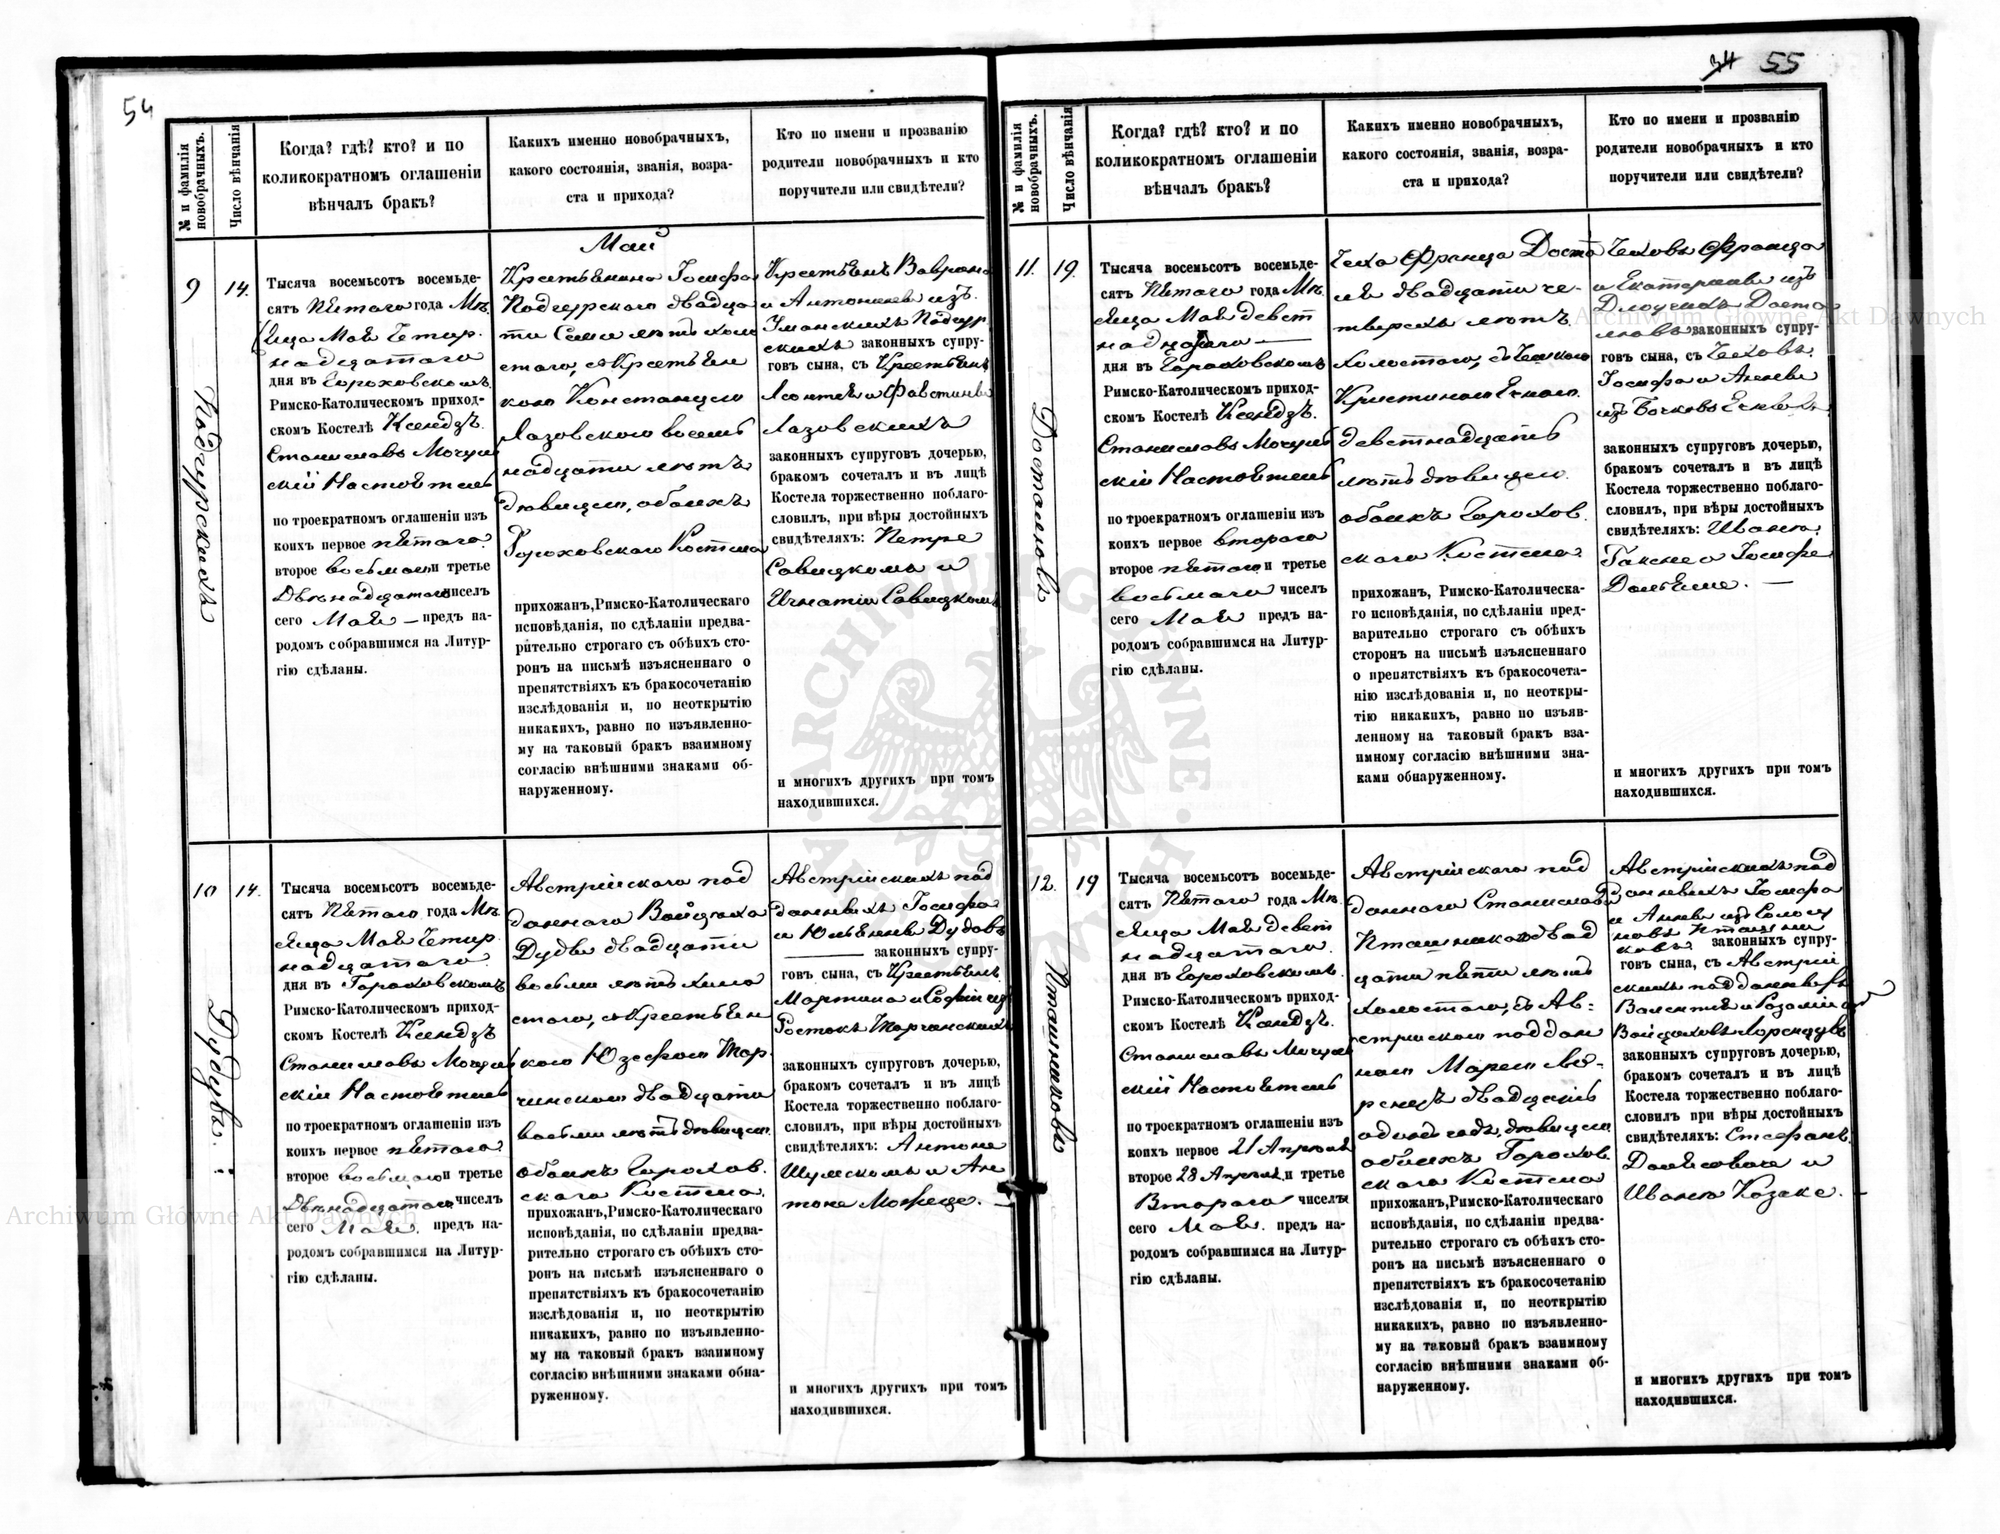 54
№ и фамилія новобрачныхъ.
Число вѣнчанія
Когда? гдѣ? кто? и по
коликократномъ оглашеніи
вѣнчалъ бракъ?
Какихъ именно новобрачныхъ,
какого состоянія, званія, возра-
ста и прихода?
Кто по имени и прозванію
родители новобрачныхъ и кто
поручители или свидѣтели?
9
14.
Тысяча восемьсотъ восемьде-
сятъ пятаго года Мѣ-
сяца Мая Четыр-
надцатаго
дня въ Гороховскомъ
Римско-Католическомъ приход-
скомъ Костелѣ Ксендзъ
Станиславъ
скій Настоятель
по троекратномъ оглашеніи изъ
коихъ первое пятаго
второе восьмаго и третье
Двѣнадцатаго чиселъ
сего Мая — предъ на-
родомъ собравшимся на Литур-
гію сдѣланы.
Май
Крестьянина Іосифа
Подгурскаго двадца-
ти семи лѣтъ холо-
стаго, съ Крестьян-
кою Констанціею
Лазовскою восем-
надцати лѣтъ
дѣвицею, обоихъ
Гороховскаго Костела
прихожан, Римско-Католическаго
исповѣданія, по сдѣланіи предва-
рительно строгаго съ обѣихъ сто-
ронъ на письмѣ изъясненнаго о
препятствіяхъ къ бракосочетанію
изслѣдованія и, по неоткрытію
никакихъ, равно по изъявленно-
му на таковый бракъ взаимному
согласію внѣшними знаками об-
наруженному.
Крестьянъ
и Антонины изъ
Уманскихъ Подгур-
скихъ законныхъ супру-
говъ сына, съ Крестьянъ
Леонтія и Фавстины
Лазовскихъ
законныхъ супруговъ дочерью,
бракомъ сочеталъ и въ лицѣ
Костела торжественно поблаго-
словилъ, при вѣры достойныхъ
свидѣтеляхъ: Петрѣ
Савицкомъ и
Игнатіи Савицкомъ
и многихъ другихъ при томъ
находившихся.
10
14.
Дудувъ.
Тысяча восемьсотъ восемьде-
сятъ пятаго года Мѣ-
сяца Мая Четыр-
надцатаго
дня въ Гороховскомъ
Римско-Католическомъ приход-
скомъ Костелѣ Ксендзъ
Станиславъ
скій Настоятель
по троекратномъ оглашеніи изъ
коихъ первое пятаго
второе восьмаго и третье
Двѣнадцатаго чиселъ
сего Мая. предъ на-
родомъ собравшимся на Литур-
гію сдѣланы.
Австрійскаго под-
даннаго Войцѣха
Дуды двадцати
восьми лѣтъ холо-
стаго, съ Крестьян-
кою Юзефою Тор-
чинскою двадцати
восьми лѣтъ дѣвицею
обоихъ Горохов-
скаго Костела
прихожан, Римско-Католическаго
исповѣданія, по сдѣланіи предва-
рительно строгаго съ обѣихъ сто-
ронъ на письмѣ изъясненнаго о
препятствіяхъ къ бракосочетанію
изслѣдованія и, по неоткрытію
никакихъ, равно по изъявленно-
му на таковый бракъ взаимному
согласію внѣшними знаками обна-
руженному.
Австрійскихъ под-
данныхъ Іосифа
и Юліанны Дудовъ
законныхъ супру-
говъ сына, съ Крестьянъ
Мартина и Софіи изъ
законныхъ супруговъ дочерью,
бракомъ сочеталъ и въ лицѣ
Костела торжественно поблаго-
словилъ, при вѣры достойныхъ
свидѣтеляхъ: Антонѣ
Шумскомъ и Ан-
тонѣ
и многихъ другихъ при томъ
находившихся.
34 55
№ и фамилія новобрачныхъ.
Число вѣнчанія
Когда? гдѣ? кто? и по
коликократномъ оглашеніи
вѣнчалъ бракъ?
Какихъ именно новобрачныхъ,
какого состоянія, званія, возра-
ста и прихода?
Кто по имени и прозванію
родители новобрачныхъ и кто
поручители или свидѣтели?
11.
19.
Досталовъ
Тысяча восемьсотъ восемьде-
сятъ пятаго года Мѣ-
сяца Мая девят-
надцатаго —
дня въ Гороховскомъ
Римско-Католическомъ приход-
скомъ Костелѣ Ксендзъ.
Станиславъ
скій Настоятель
по троекратномъ оглашеніи изъ
коихъ первое втораго
второе пятаго и третье
восьмаго чиселъ
сего Мая предъ на-
родомъ собравшимся на Литур-
гію сдѣланы.
Чеха Франца Доста-
ля двадцати че-
тырехъ лѣтъ
холостаго, съ Чешкою
Христиною
девятнадцать
лѣтъ дѣвицею
обоихъ Горохов-
скаго Костела
прихожан, Римско-Католическа-
го исповѣданія, по сдѣланіи пред-
варительно строгаго съ обѣихъ
сторонъ на письмѣ изъясненнаго
о препятствіяхъ къ бракосочета-
нію изслѣдованія и, по неоткры-
тію никакихъ, равно по изъяв-
ленному на таковый бракъ вза-
имному согласію внѣшними зна-
ками обнаруженному.
Чеховъ Франца
и Екатерины изъ
Доста-
ловъ законныхъ супру-
говъ сына, съ Чеховъ
Іосифа и Анны
изъ
законныхъ супруговъ дочерью,
бракомъ сочеталъ и въ лицѣ
Костела торжественно поблаго-
словилъ, при вѣры достойныхъ
свидѣтеляхъ: Иванѣ
и Іосифѣ
и многихъ другихъ при томъ
находившихся.
12.
19
Пташниковъ
Тысяча восемьсотъ восемьде-
сятъ пятаго года Мѣ-
сяца Мая девят-
надцатаго.
дня въ Гороховскомъ
Римско-Католическомъ приход-
скомъ Костелѣ Ксендзъ.
Станиславъ
скій Настоятель
по троекратномъ оглашеніи изъ
коихъ первое 21 Апрѣля
второе 28 Апрѣля и третье
Втораго чиселъ
сего Мая. предъ на-
родомъ собравшимся на Литур-
гію сдѣланы.
Австрійскаго под-
даннаго Станислава
Пташника двад-
цати пяти лѣтъ
холостаго, съ Ав-
стрійскою поддан-
ною Маріею Ло-
ренцъ двадцать
одинъ годъ, дѣвицею
обоихъ Горохов-
скаго Костела
прихожан, Римско-Католическаго
исповѣданія, по сдѣланіи предва-
рительно строгаго съ обѣихъ сто-
ронъ на письмѣ изъясненнаго о
препятствіяхъ къ бракосочетанію
изслѣдованія и, по неоткрытію
никакихъ, равно по изъявленно-
му на таковый бракъ взаимному
согласію внѣшними знаками об-
наруженному.
Австрійскихъ под-
данныхъ Іосифа
и Анны изъ
Пташни-
ковъ законныхъ супру-
говъ сына, съ Австрій-
скихъ подданныхъ
Валентія и Розаліи изъ
Войциховъ Лоренцувъ
законныхъ супруговъ дочерью,
бракомъ сочеталъ и въ лицѣ
Костела торжественно поблаго-
словилъ при вѣры достойныхъ
свидѣтеляхъ: Стефанѣ
и
Иванѣ Козакѣ.
и многихъ другихъ при томъ
находившихся.
Archiwum Główne Akt Dawnych
Archiwum Główne Akt Dawnych
ARCHIWUM GŁÓWNE AKT DAWNYCH